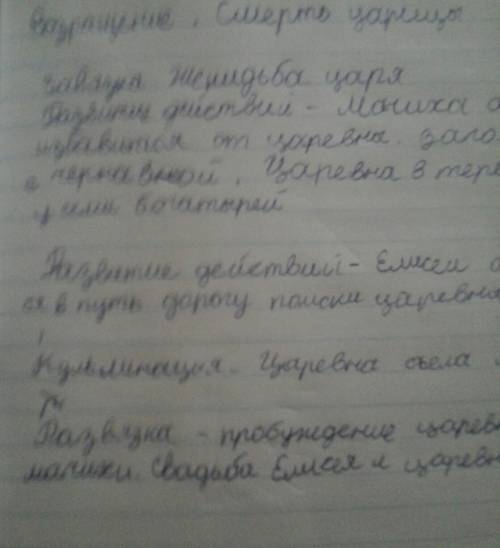 Возращение. Смерть царицы
завязка Женидьба царя
Развитие действий - Мачиха
избавится от царевны. заго
с чернавкой. Царевна в тере
у семи богатырей
Развитие действий - Елисей о
ся в путь дорогу поиски царевны
Кульминация. Царевна съела
Развязка - пробуждение царевн
мачихи. Свадьба Елисея и царевн